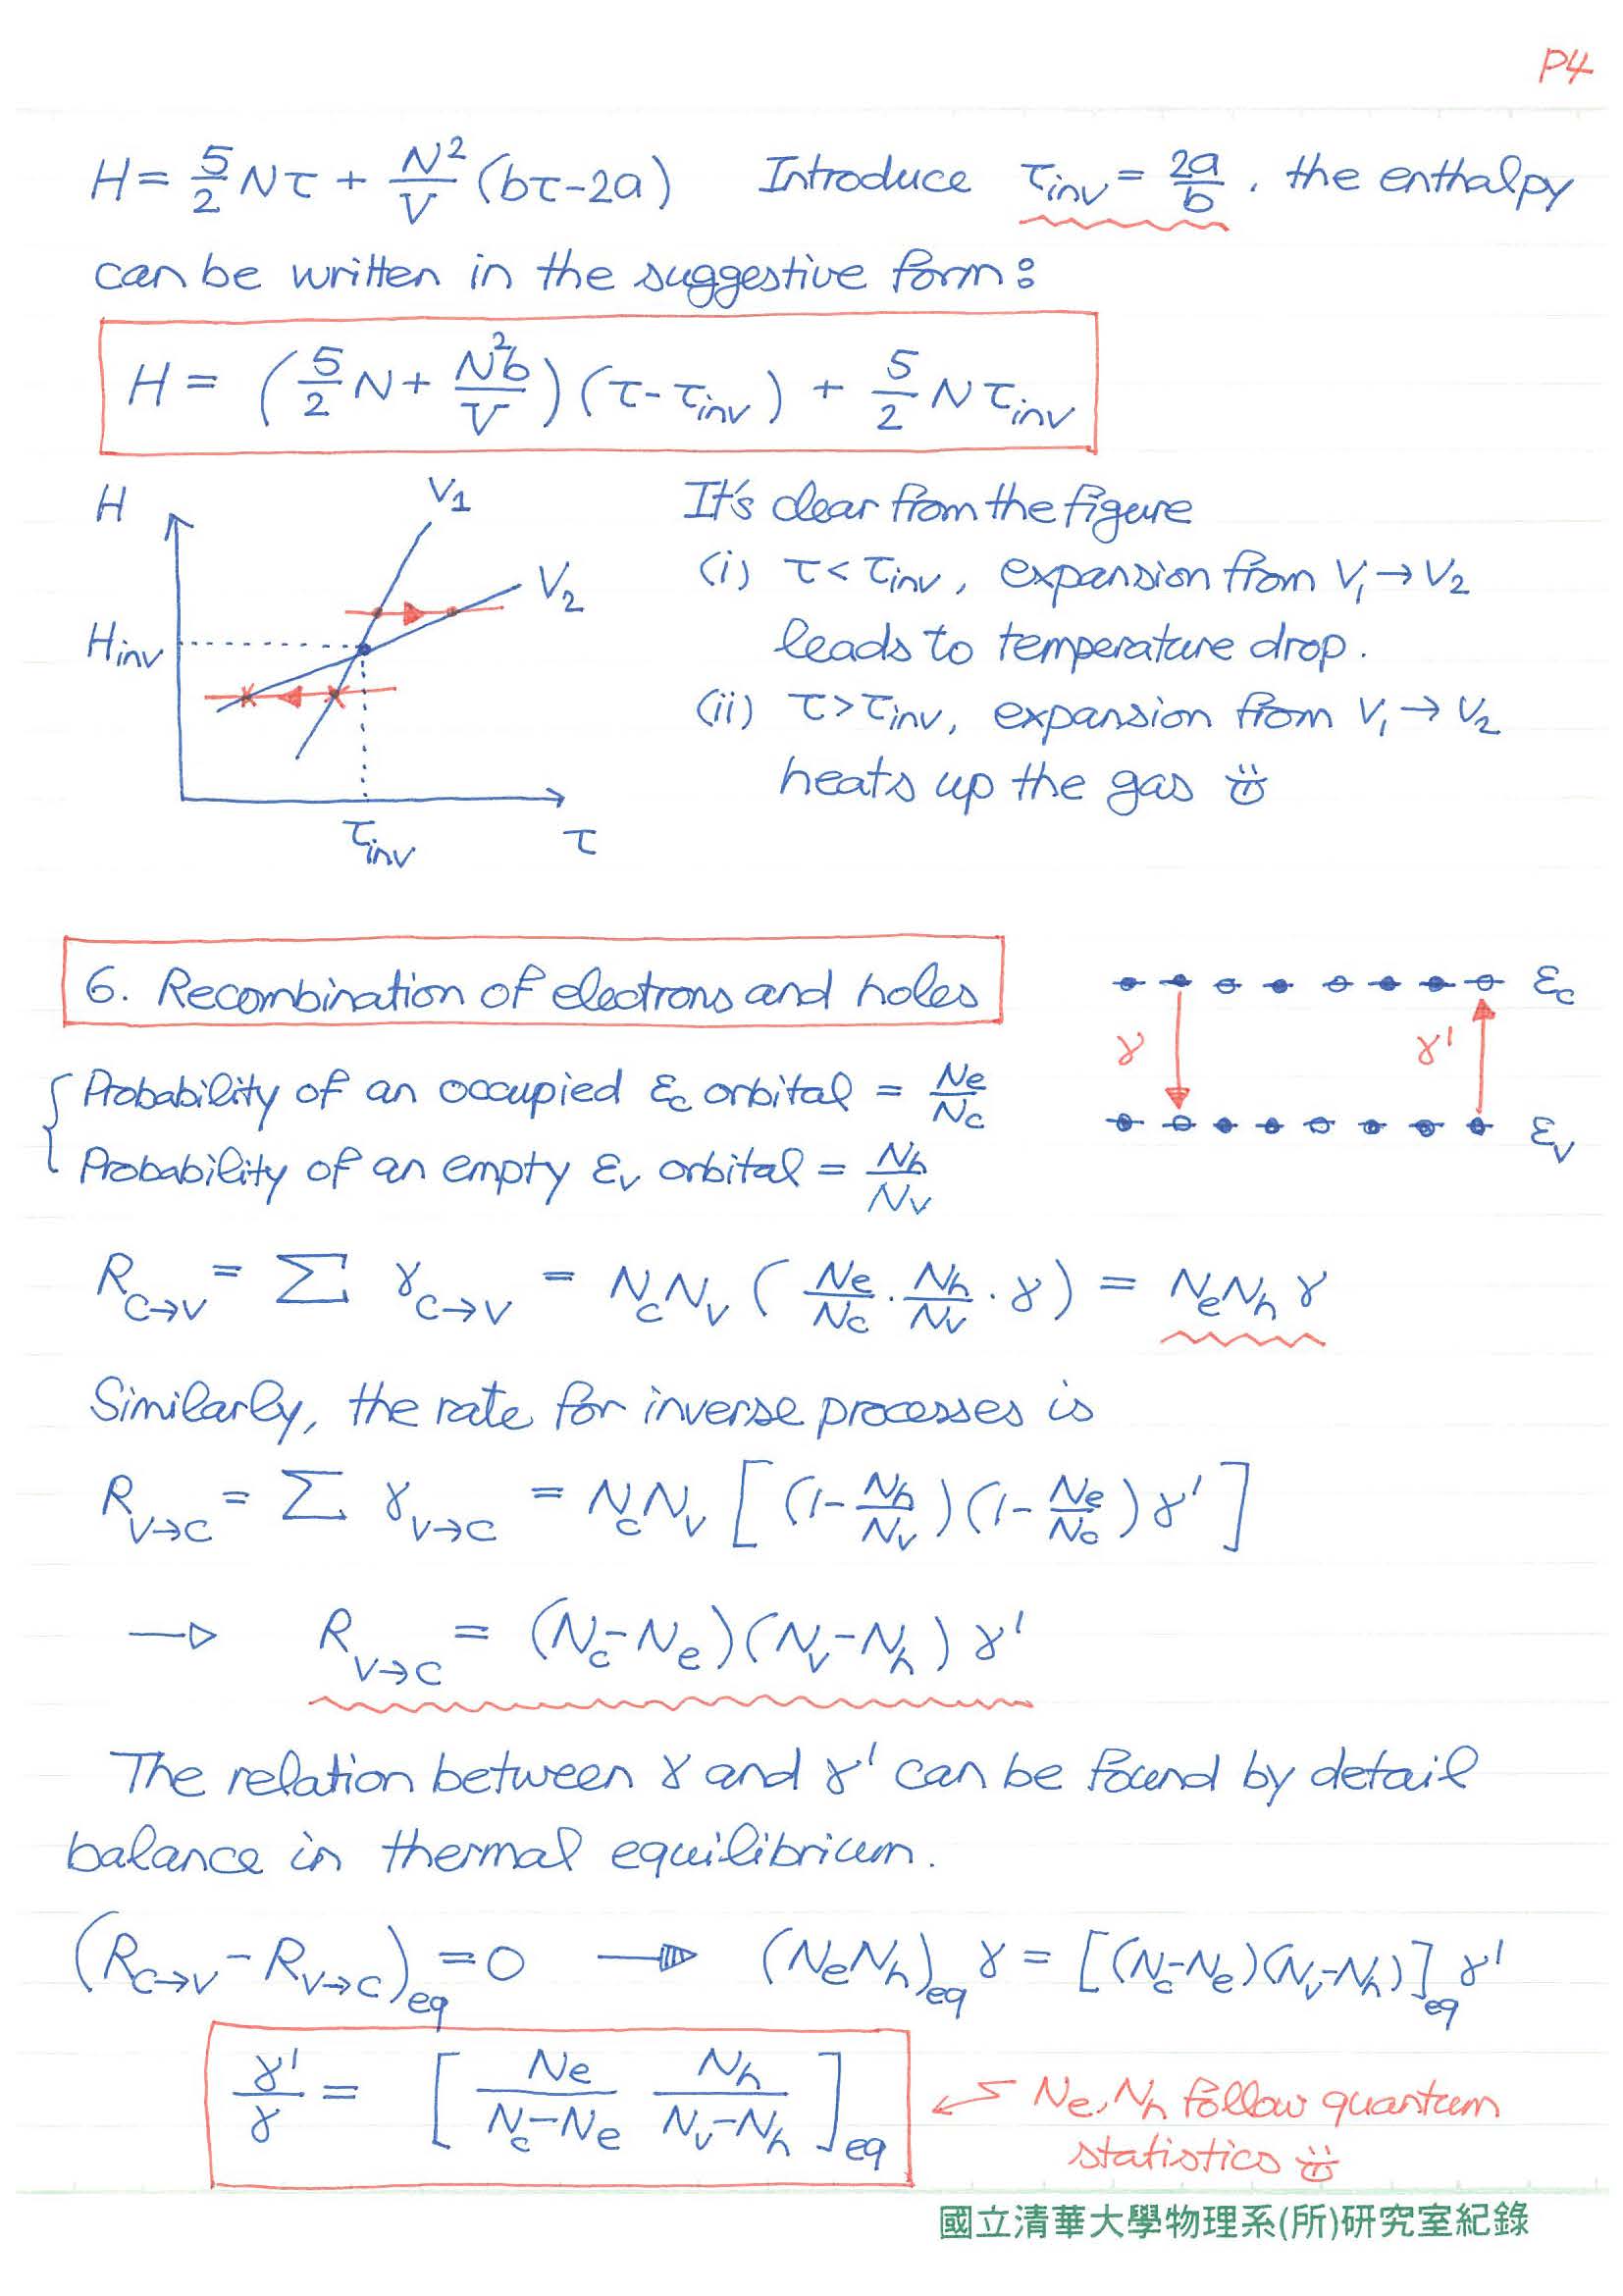 P4
H = 5/2 Nτ + N²/V (bτ-2a)   Introduce τ_inv = 2a/b . the enthalpy
can be written in the suggestive form:
H = (5/2 N + N²b/V)(τ-τ_inv) + 5/2 N τ_inv
H
V₁
V₂
H_inv
τ_inv
τ
It's clear from the figure
(i) τ < τ_inv, expansion from V₁ → V₂
leads to temperature drop.
(ii) τ > τ_inv, expansion from V₁ → V₂
heats up the gas
6. Recombination of electrons and holes
ε_c
γ
γ'
ε_v
Probability of an occupied ε_c orbital = N_e/N_c
Probability of an empty ε_v orbital = N_h/N_v
R_{c→v} = Σ γ_{c→v} = N_c N_v (N_e/N_c · N_h/N_v · γ) = N_e N_h γ
Similarly, the rate for inverse processes is
R_{v→c} = Σ γ_{v→c} = N_c N_v [(1-N_h/N_v)(1-N_e/N_c)γ']
→ R_{v→c} = (N_c-N_e)(N_v-N_h) γ'
The relation between γ and γ' can be found by detail
balance in thermal equilibrium.
(R_{c→v} - R_{v→c})_eq = 0 → (N_e N_h)_eq γ = [(N_c-N_e)(N_v-N_h)]_eq γ'
γ'/γ = [N_e/(N_c-N_e) N_h/(N_v-N_h)]_eq
N_e, N_h follow quantum
statistics
國立清華大學物理系(所)研究室紀錄